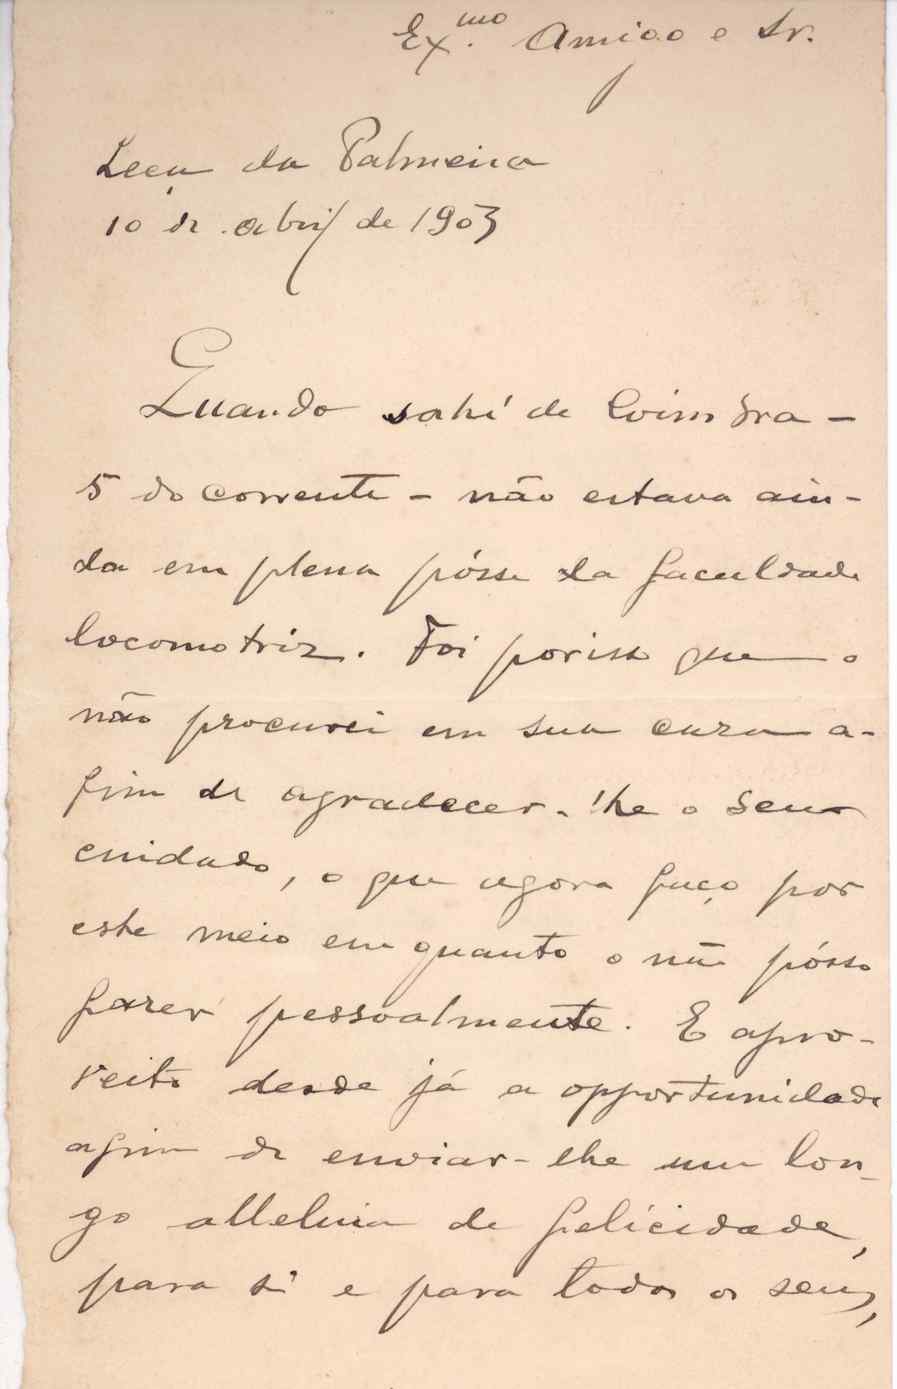 Ex.mo Amigo e Sr.
Leça da Palmeira
10 de abril de 1903
Quando sahí de Coimbra –
5 do corrente – não estava ain-
da em plena pósse da faculdade
locomotriz. Foi porisso que o
não procurei em sua caza a-
fim de agradecer-lhe o seu
cuidado, o que agora faço por
este meio em quanto o não pósso
fazer pessoalmente. E apro-
veito desde já a opportunidade
afim de enviar-lhe um lon-
go alleluia de felicidade,
para si e para todos os seus,